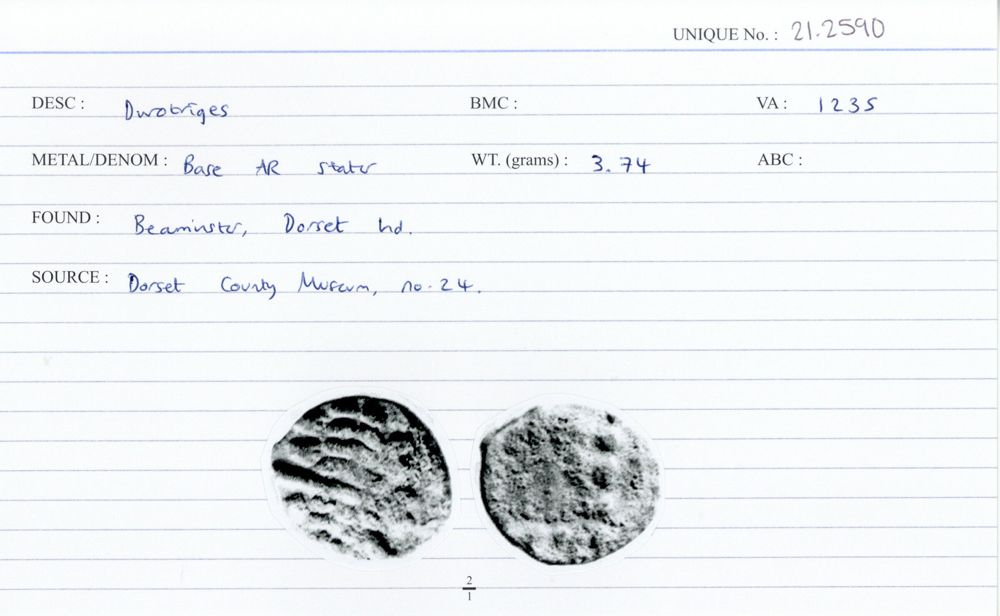 UNIQUE No. : 21.2590
DESC : Durotriges BMC : VA : 1235
METAL/DENOM : Base AR stater WT. (grams) : 3.74 ABC :
FOUND : Beaminster, Dorset hd.
SOURCE : Dorset County Museum, no. 24.
2
1